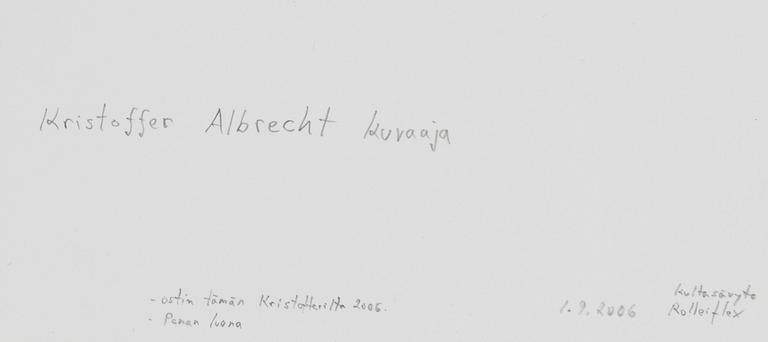 Kristoffer Albrecht kuvaaja
- ostin tämän Kristofferilta 2006.
- Panan luona
1.9.2006
kultasävyte
Rolleiflex